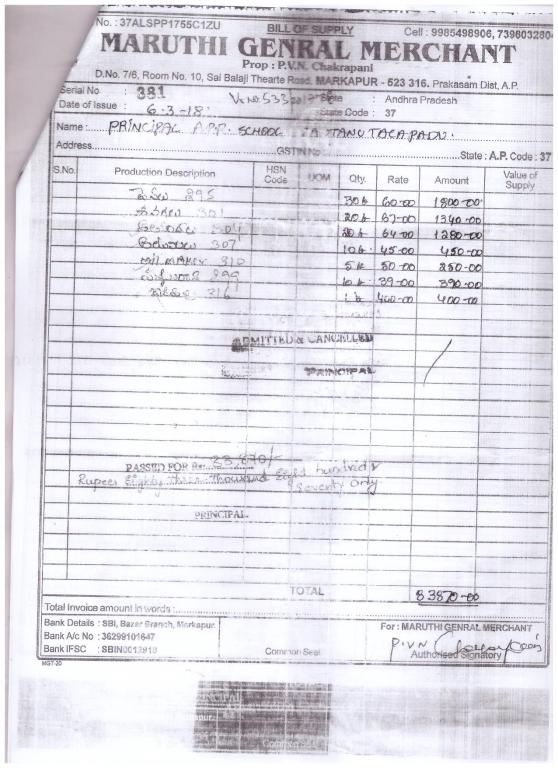 No. : 37ALSPP1755C1ZU BILL OF SUPPLY Cell : 9985498906, 7396032804
MARUTHI GENRAL MERCHANT
Prop : P.V.N. Chakrapani
D.No. 7/6, Room No. 10, Sai Balaji Thearte Road, MARKAPUR - 523 316. Prakasam Dist, A.P.
Serial No 381 Andhra Pradesh
Date of Issue : 6-3-18 State Code : 37
Name : PRINCIPAL A.P.R. SCHOOL
Address GSTIN No State : A.P. Code : 37
S.No. Production Description HSN Code UOM Qty. Rate Amount Value of Supply
30k 60-00 1800-00
301 20k 67-00 1340-00
304 20k 64-00 1280-00
307 10k 45-00 450-00
310 5k 50-00 250-00
10k 39-00 390-00
316 1k 400-00 400-00
ADMITTED & CANCELLED
PRINCIPAL
PASSED FOR Rs.
Rupees Eighty Three Thousand Eight hundred &
Seventy Only
PRINCIPAL
TOTAL 83870-00
Total Invoice amount in words :
Bank Details : SBI, Bazar Branch, Markapur.
Bank A/c No : 36299101647
Bank IFSC : SBIN0013918
Common Seal
For : MARUTHI GENRAL MERCHANT
P.V.N
Authorised Signatory
MGT-20